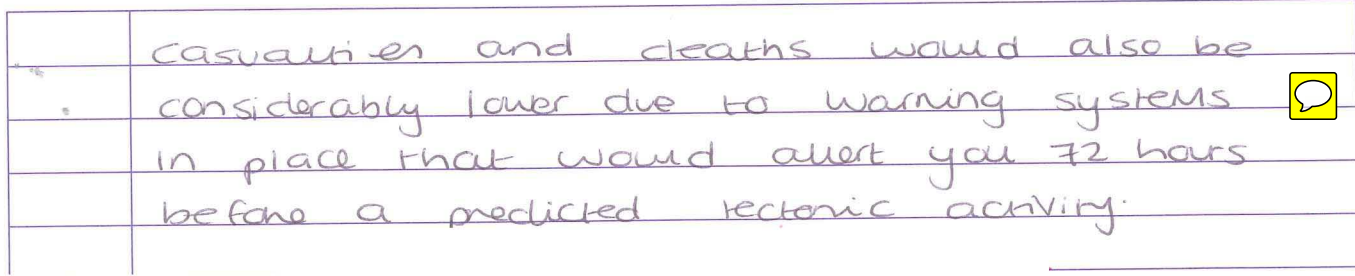 casualties and deaths would also be
considerably lower due to warning systems
in place that would allert you 72 hours
before a predicted tectonic activity.